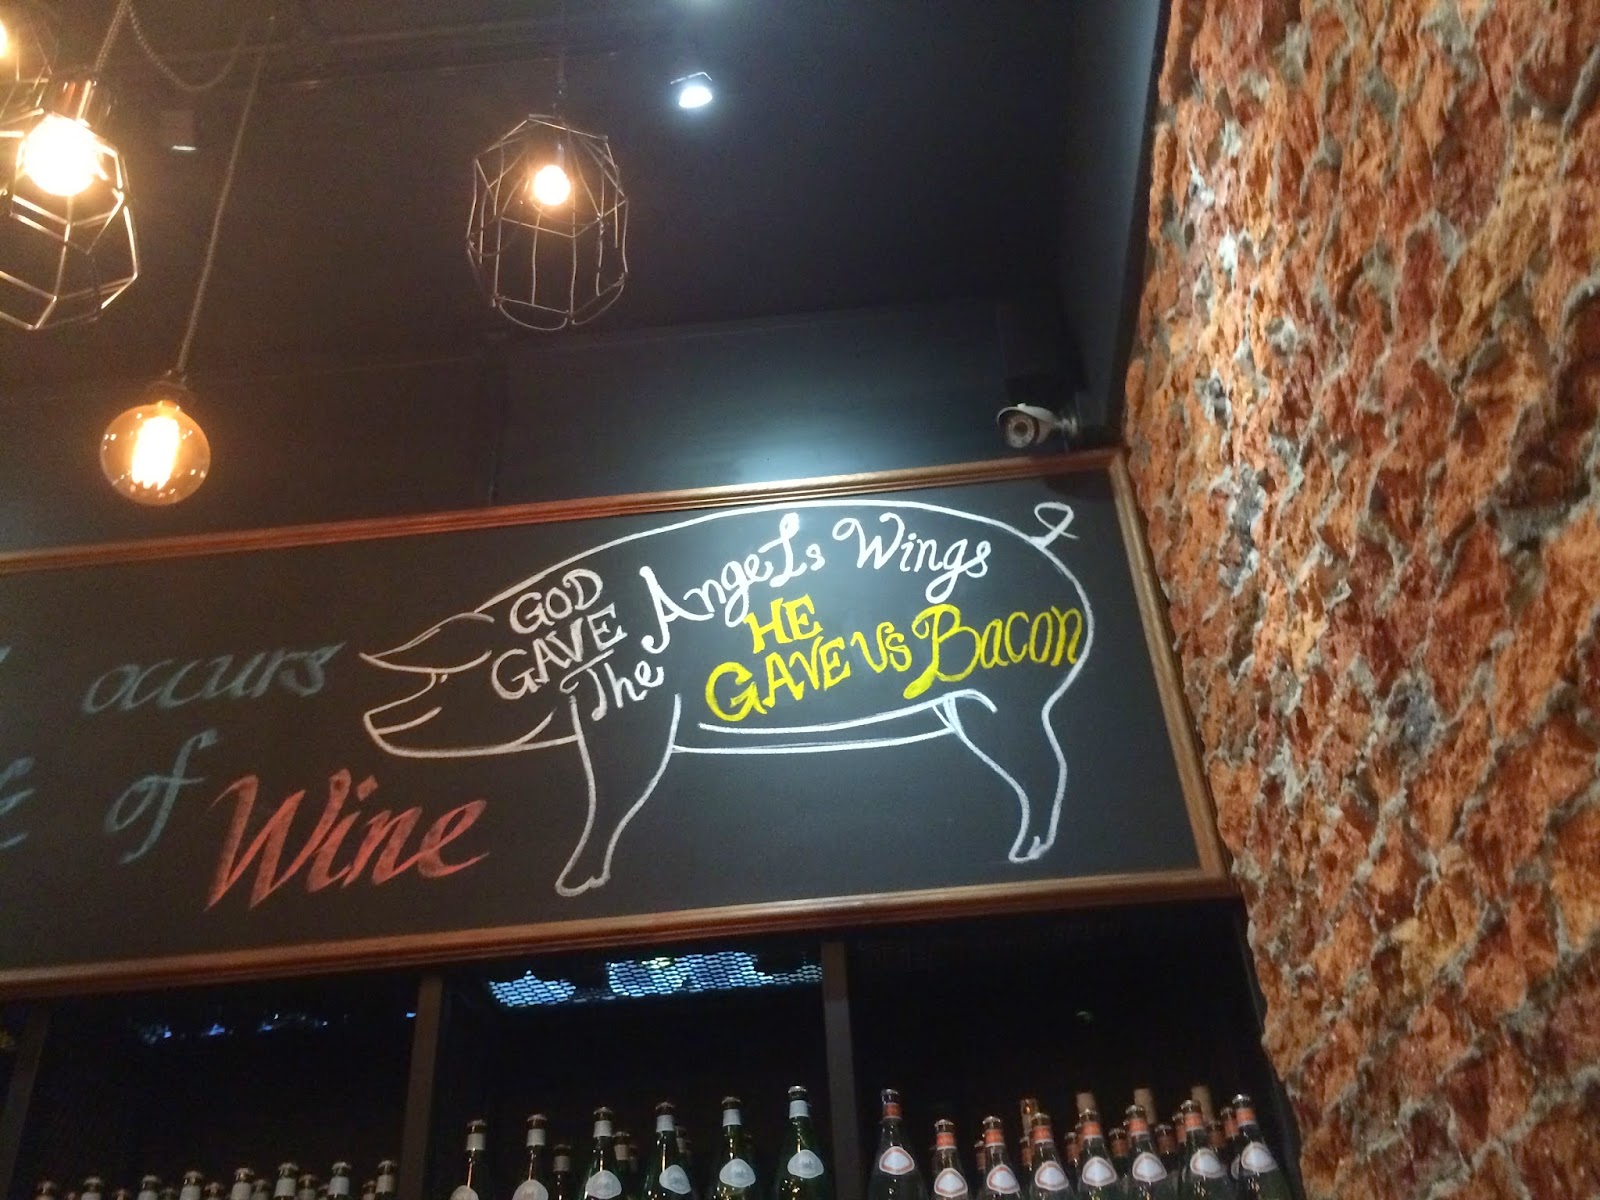 occurs
of Wine
GOD
GAVE
The AngeLs Wings
HE
GAVE US Bacon